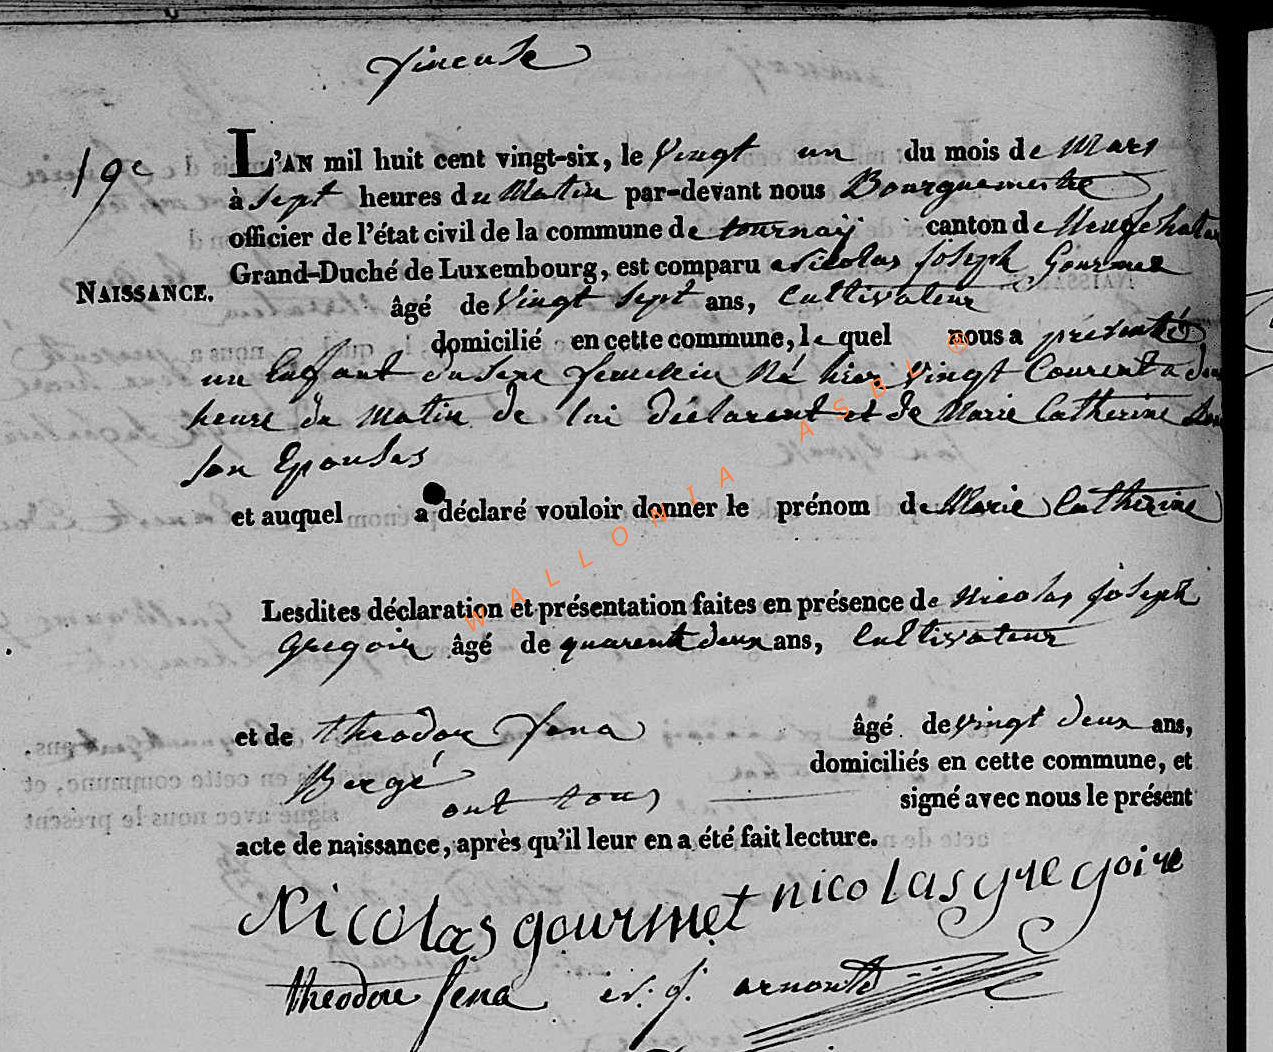 19e
L'AN mil huit cent vingt-six, le Vingt un du mois de Mars
à Sept heures du Matin par-devant nous Bourguemestre
officier de l'état civil de la commune de tournay canton de Neufchatau
Grand-Duché de Luxembourg, est comparu Nicolas joseph Gourmet
NAISSANCE.
âgé de Vingt Sept ans, Cultivateur
domicilié en cette commune, le quel nous a présenté
un Enfant du sexe femelein Né hier Vingt Courent a deux
heure du matin de lui déclarent et de Marie Catherine
son Epouses
et auquel a déclaré vouloir donner le prénom de Marie Catherine
Lesdites déclaration et présentation faites en présence de Nicolas joseph
Gregoir âgé de quarente deux ans, Cultivateur
et de theodore Jena âgé de vingt deux ans,
Bergé domiciliés en cette commune, et
ont tous signé avec nous le présent
acte de naissance, après qu'il leur en a été fait lecture.
Nicolas gourmet nicolas gregoire
theodore Jena j. arnould
WALLONIA ASBL ®